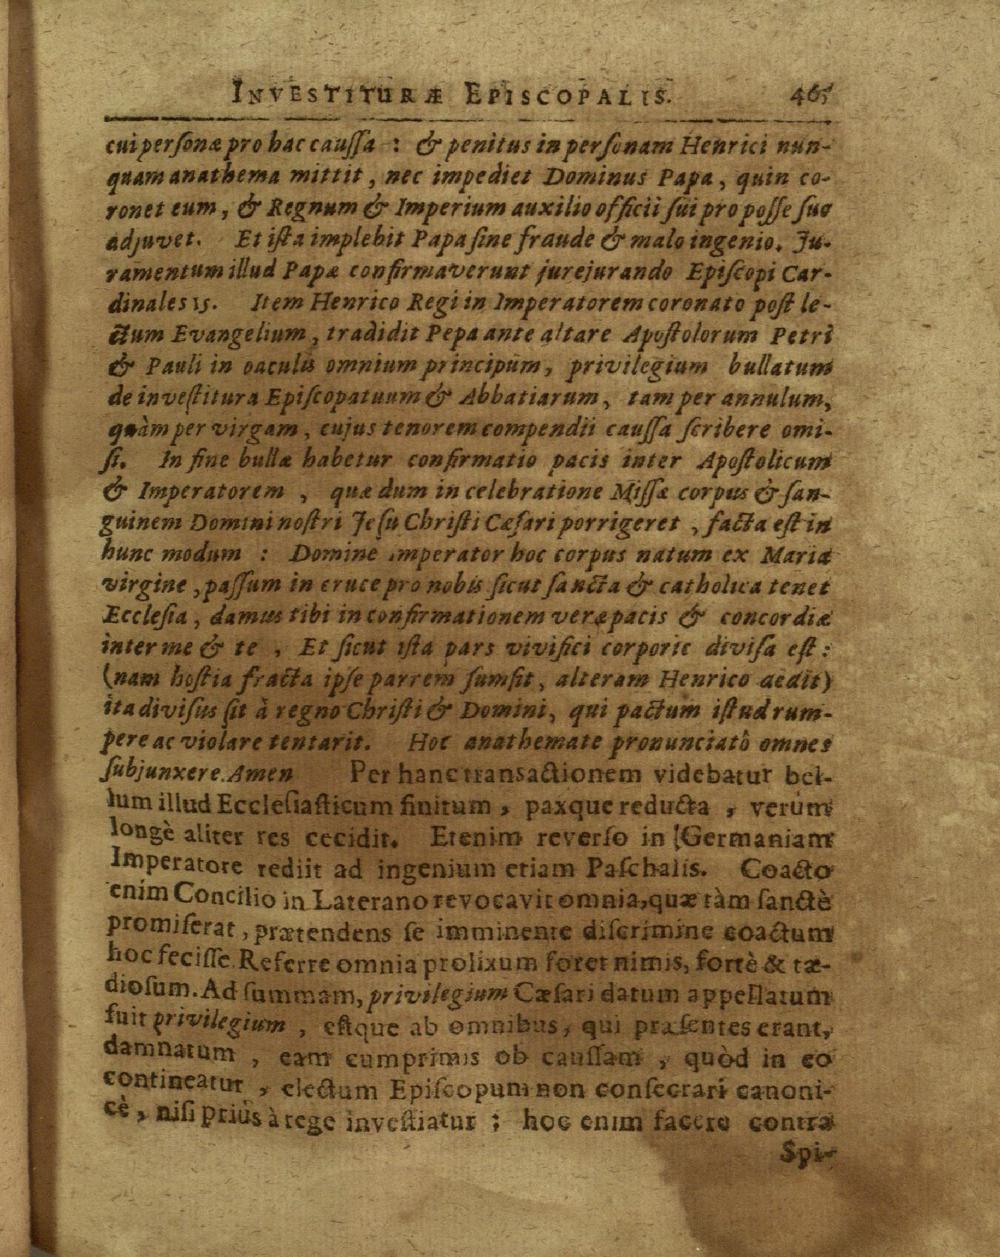 INVESTITURÆ EPISCOPALIS. 465
cui personæ pro hac caussa : & penitus in personam Henrici nun-
quam anathema mittit, nec impediet Dominus Papa, quin co-
ronet eum, & Regnum & Imperium auxilio officii sui pro posse suo
adjuvet. Et ista implebit Papa sine fraude & malo ingenio. Ju-
ramentum illud Papæ confirmaverunt jurejurando Episcopi Car-
dinales 15. Item Henrico Regi in Imperatorem coronato post le-
ctum Evangelium, tradidit Pepa ante altare Apostolorum Petri
& Pauli in oaculis omnium principum, privilegium bullatum
de investitura Episcopatuum & Abbatiarum, tam per annulum,
quàm per virgam, cujus tenorem compendii caussa scribere omi-
si. In fine bullæ habetur confirmatio pacis inter Apostolicum
& Imperatorem , quæ dum in celebratione Missæ corpus & san-
guinem Domini nostri Jesu Christi Cæsari porrigeret , facta est in
hunc modum : Domine imperator hoc corpus natum ex Maria
virgine , passum in cruce pro nobis sicut sancta & catholica tenet
Ecclesia , damus tibi in confirmationem veræ pacis & concordiæ
inter me & te , Et sicut ista pars vivifici corporis divisa est :
(nam hostia fracta ipse parrem sumsit, alteram Henrico dedit)
ita divisus sit à regno Christi & Domini, qui pactum istud rum-
pere ac violare tentarit. Hoc anathemate pronunciatô omnes
subjunxere. Amen Per hanc transactionem videbatur bel-
lum illud Ecclesiasticum finitum , paxque reducta , verùm
longè aliter res cecidit. Etenim reverso in (Germaniam
Imperatore rediit ad ingenium etiam Paschalis. Coacto
enim Concilio in Laterano revocavit omnia, quæ tàm sanctè
promiserat , prætendens se imminente discrimine coactum
hoc fecisse. Referre omnia prolixum foret nimis, fortè & tæ-
diosum. Ad summam, privilegium Cæsari datum appellatum
fuit privilegium , estque ab omnibus, qui præsentes erant,
damnatum , eam cumprimis ob caussam , quòd in eo
contineatur , electum Episcopum non consecrari canoni-
cè , nisi priùs à rege investiatur ; hoc enim facere contra
Spi-